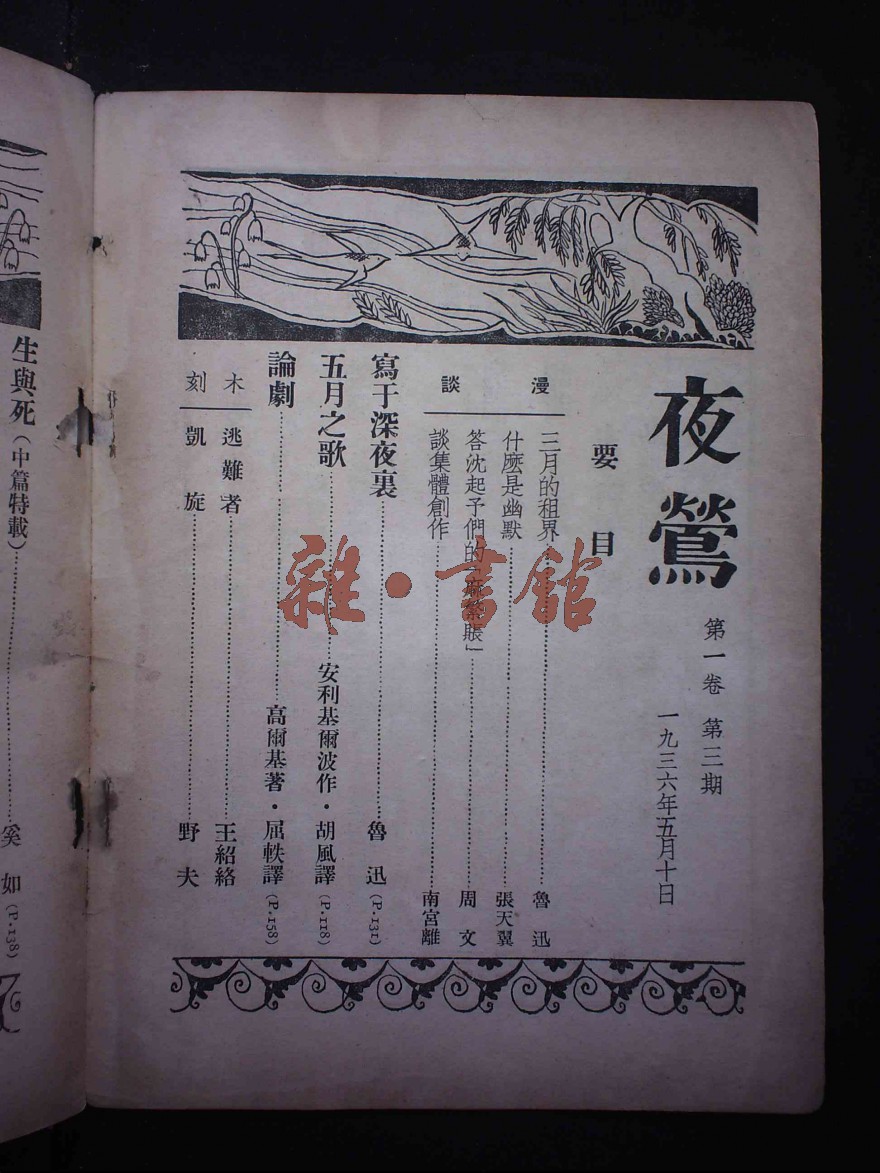 夜鶯
第一卷 第三期
一九三六年五月十日
要目
漫談
三月的租界……魯迅
什麼是幽默……張天翼
答沈起予們的「麻繁賬」……周文
談集體創作……南宮離
寫于深夜裏……魯迅(P.131)
五月之歌……安利基爾波作·胡風譯(P.118)
論劇……高爾基著·屈軼譯(P.158)
木刻
逃難者……王紹絡
凱旋……野夫
生與死(中篇特載)……奚如(P.138)
雜·書館